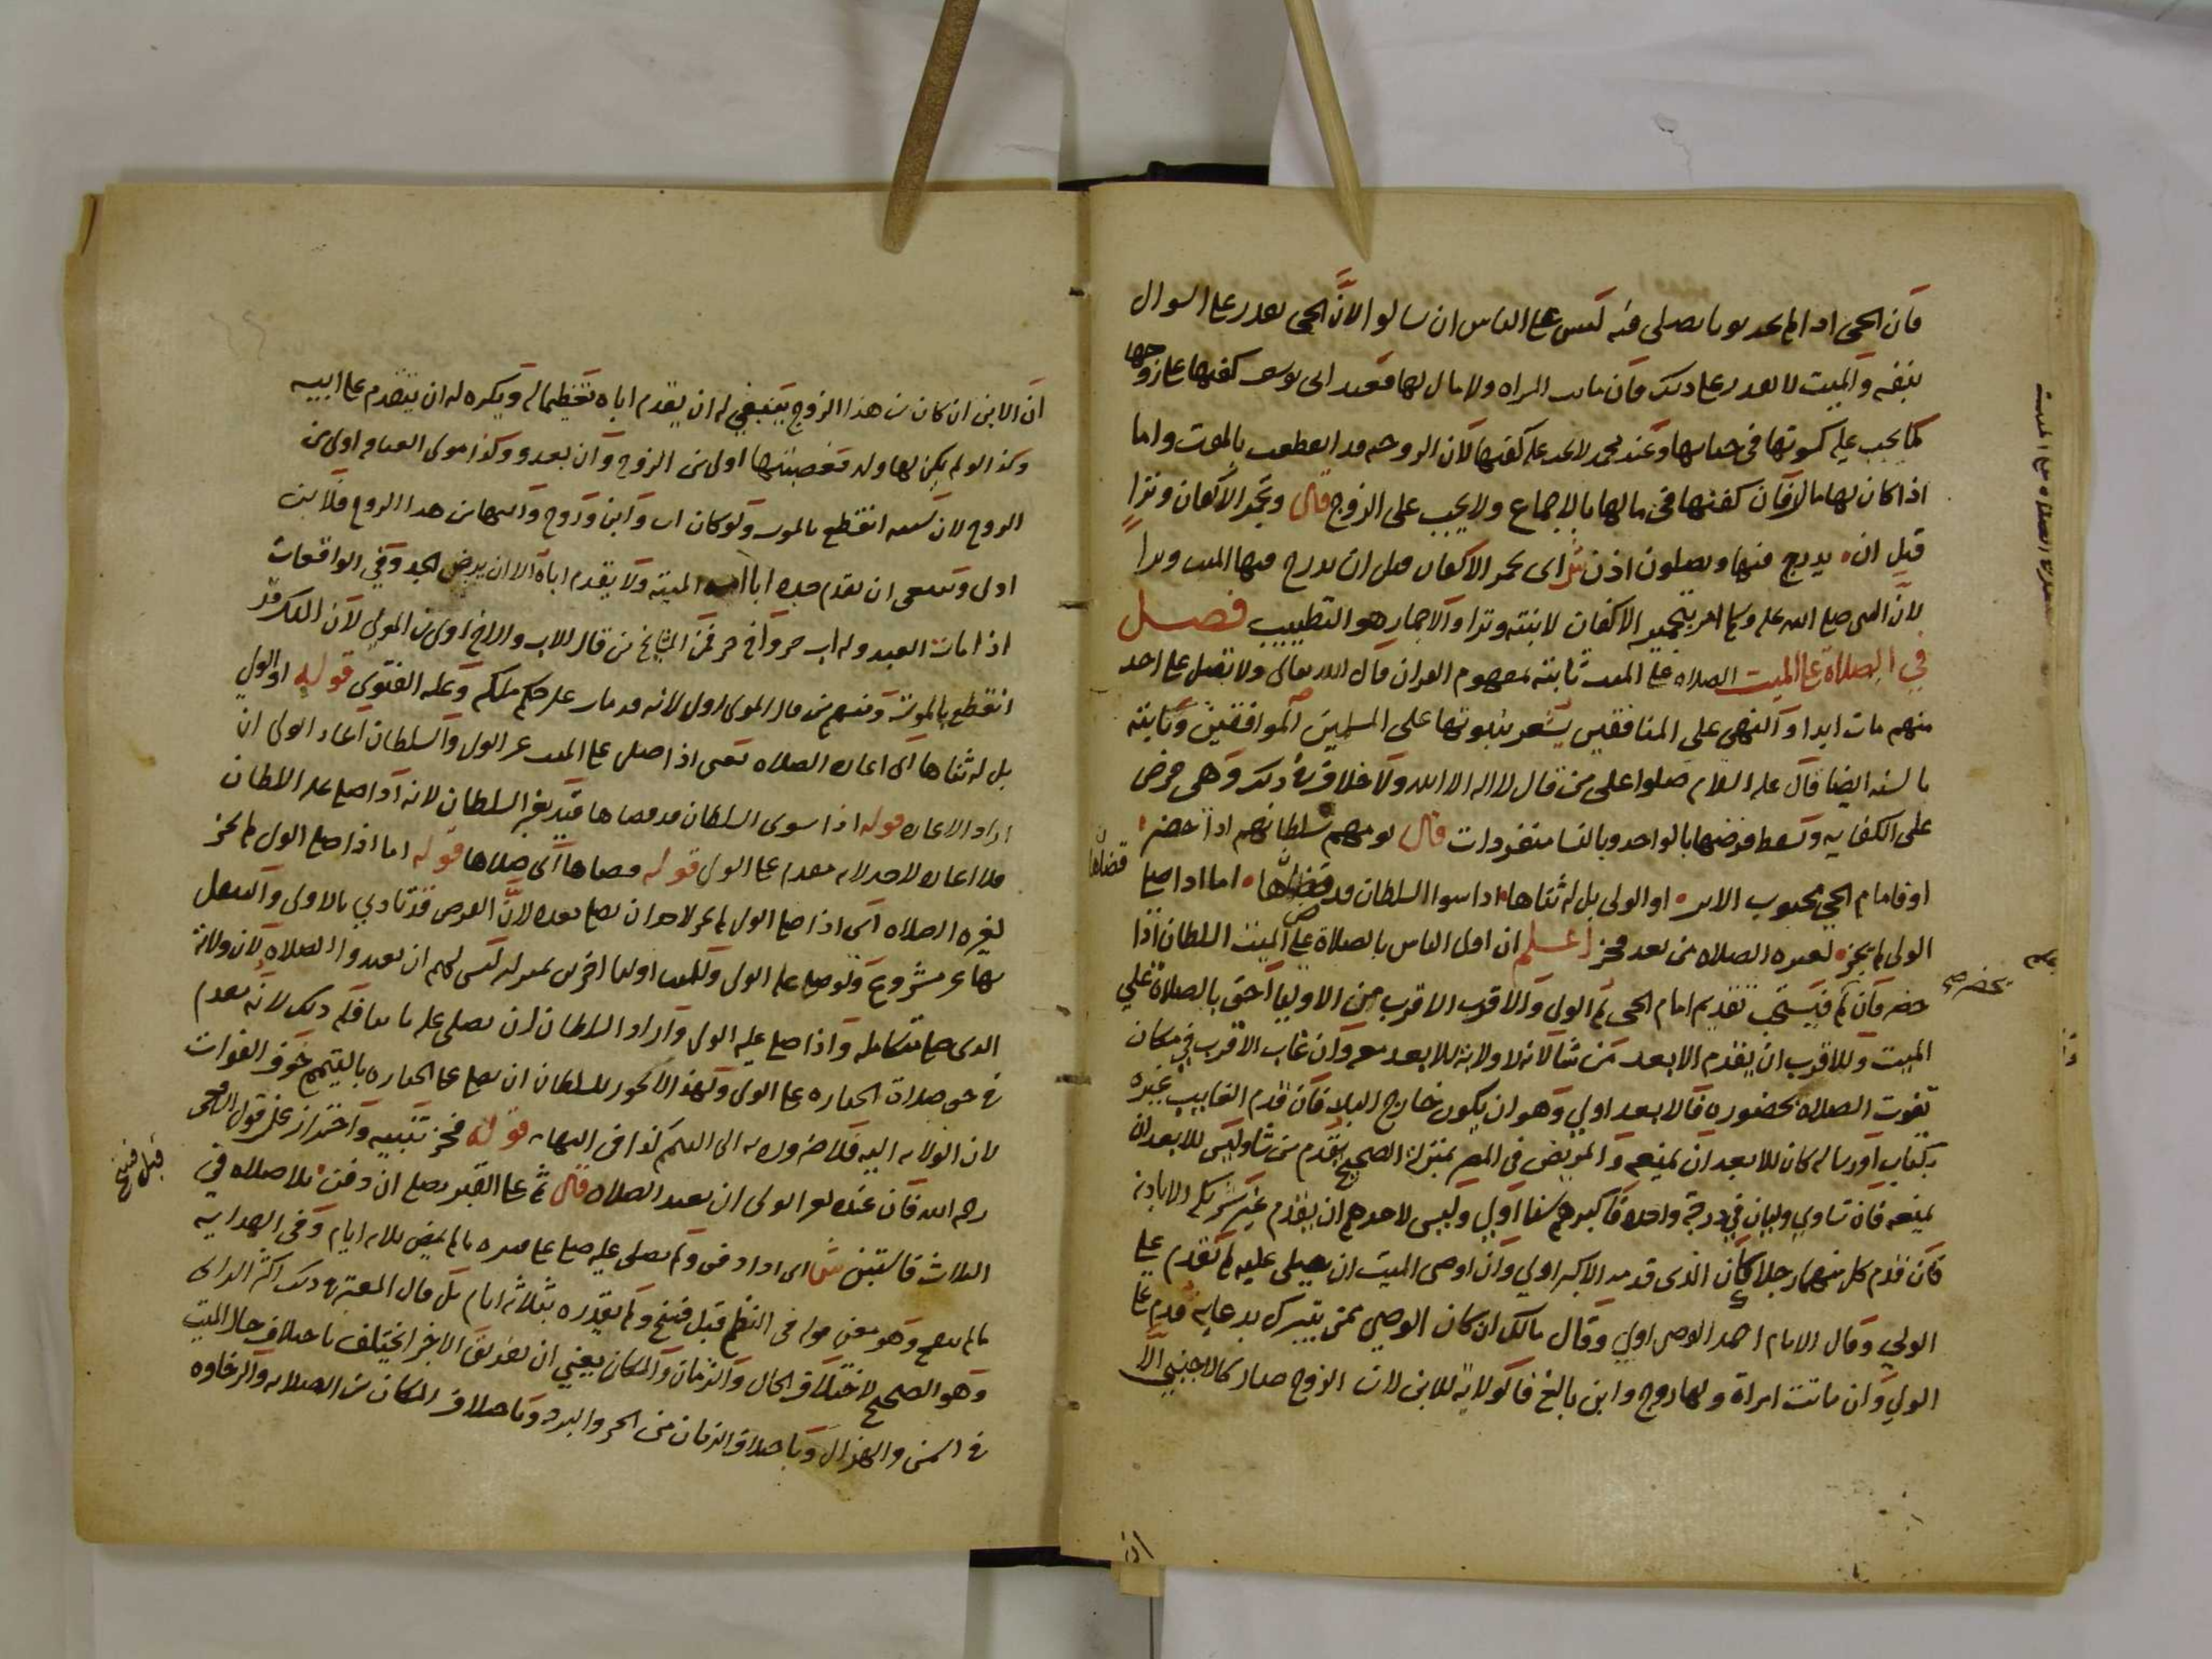 فان الحى اذا لم يجد ثوبا يصلى فيه ليس على الناس ان يسالوا لان الحى يقدر على السوال
بنفسه والميت لا يقدر على ذلك فان ماتت المراة ولا مال لها فعند ابى يوسف كفنها على زوجها
كما يجب عليه كسوتها فى حياتها وعند محمد لا يجب عليه كفنها لان الزوجية قد انقطعت بالموت واما
اذا كان لها مال فان كفنها فى مالها بالاجماع ولا يجب على الزوج قال وتجمر الاكفان وترا
قبل ان يدرج فيها ويصلون اذن ش اى تجمر الاكفان قبل ان يدرج فيها الميت وترا
لان النبى صلى الله عليه وسلم امر بتجمير الاكفان لابنته وترا والاجمار هو التطييب فصل
في الصلاة على الميت الصلاه على الميت ثابتة بمفهوم القران قال الله تعالى ولا تصل على احد
منهم مات ابدا والنهى على المنافقين يشعر بثبوتها على المسلمين الموافقين وثابتة
بالسنه ايضا قال عليه السلام صلوا على من قال لا اله الا الله ولا خلاف فى ذلك وهى فرض
على الكفايه ويسقط فرضها بالواحد وبالنسا منفردات قال يومهم سلطانهم اذا حضر
او فامام الحي محبوب الاسر او الولى بل له ثناها اذا سوا السلطان قد قضاها اما اذا صلى
قضاها
الولى لم يجز لغيره الصلاه من بعد فحز اعلم ان اولى الناس بالصلاة على الميت السلطان اذا
حضر فان لم فيستحب تقديم امام الحى ثم الولى والاقرب الاقرب من الاوليا احق بالصلاة علي
الميت وللاقرب ان يقدم الابعد من شا لانه لا ولاية للابعد معه وان غاب الاقرب في مكان
تفوت الصلاه بحضوره فالابعد اولي وهو ان يكون خارج البلد فان قدم الغايب غيره
بكتاب او رساله كان للابعد ان يمنعه والمريض فى المصر بمنزلة الصحيح يقدم من شا وليس للابعد ان
يمنعه فان تساوي وليان في درجة واحدة فاكبرهم سنا اولي وليس لاحدهم ان يقدم غير شريكه الا باذنه
فان قدم كل منهما رجلا كان الذى قدمه الاكبر اولي وان اوصى الميت ان يصلى عليه لم يقدم على
الولي وقال الامام احمد الوصى اولي وقال مالك ان كان الوصي ممن يتبرك بدعايه قدم على
الولي وان ماتت امراة ولها زوج وابن بالغ فالولاية للابن لان الزوج صار كالاجنبى الا
ان
ان الابن ان كان من هذا الزوج ينبغي له ان يقدم اباه تعظيما له ويكره له ان يتقدم على ابيه
وكذا لو لم يكن لها ولد فعصبتها اولى من الزوج وان بعدو وكذا مولى العتاقه اولى من
الزوج لان سببه انقطع بالموت ولو كان اب وابن وزوج وابنها من هذا الزوج فلابن
اولى وينبغى ان يقدم جده ابا الميته ولا يقدم اباه الا ان يرضى الجد وفي الواقعات
اذا مات العبد وله اب حر واخ حر فمن المشايخ من قال الاب والاخ اولى من المولي لان الملك قد
انقطع بالموت ومنهم من قال المولى اولى لانه قد مات على حكم ملكه وعليه الفتوى قوله او الولي
بل له ثناها اى اعادة الصلاه يعنى اذا صلى على الميت غير الولى والسلطان اعاد الولى ان
اراد الاعاده قوله اذا سوى السلطان قد قضاها قيد بغير السلطان لانه اذا صلى عليه السلطان
فلا اعاده لاحد لانه مقدم على الولى قوله قضاها اى صلاها قوله اما اذا صلى الولى لم يجز
لغيره الصلاه اى اذا صلى الولى لم يجز لاحد ان يصلى بعده لان الفرض قد تادي بالاولى والتنفل
بها غير مشروع ولو صلى عليه الولى وللميت اوليا اخرين بمنزلته ليس لهم ان يعيدوا الصلاه لان ولاية
الذى صلى متكامله واذا صلى عليه الولى واراد السلطان ان يصلى عليه ما له ذلك لانه مقدم
فى حق صلاة الجنازه على الولى ولهذا لا يجوز للسلطان ان يصلى على الجنازه بالتيمم خوف الفوات
لان الولايه اليه فلا ضروره الى التيمم كذا فى النهايه قوله فحز تنبيه واحتراز عن قول الشافعى
رحمه الله فان عنده لغير الولى ان يعيد الصلاه قال ثم على القبر يصلى ان دفن بلا صلاه في
قبل فسخ
الثلاث فاستبن ش اى اذا دفن ولم يصلى عليه صلى على قبره ما لم يمض ثلاثة ايام وفى الهدايه
ما لم يتفسخ وهو معنى قوله فى النظم قبل فسخ ولم يقدره بثلاثة ايام بل قال المعتبر فى ذلك اكثر الراى
وهو الصحيح لاختلاف الحال والزمان والمكان يعني ان تفريق الاجزا يختلف باختلاف حال الميت
فى السمن والهزال وباختلاف الزمان من الحر والبرد وباختلاف المكان من الصلابه والرخاوه